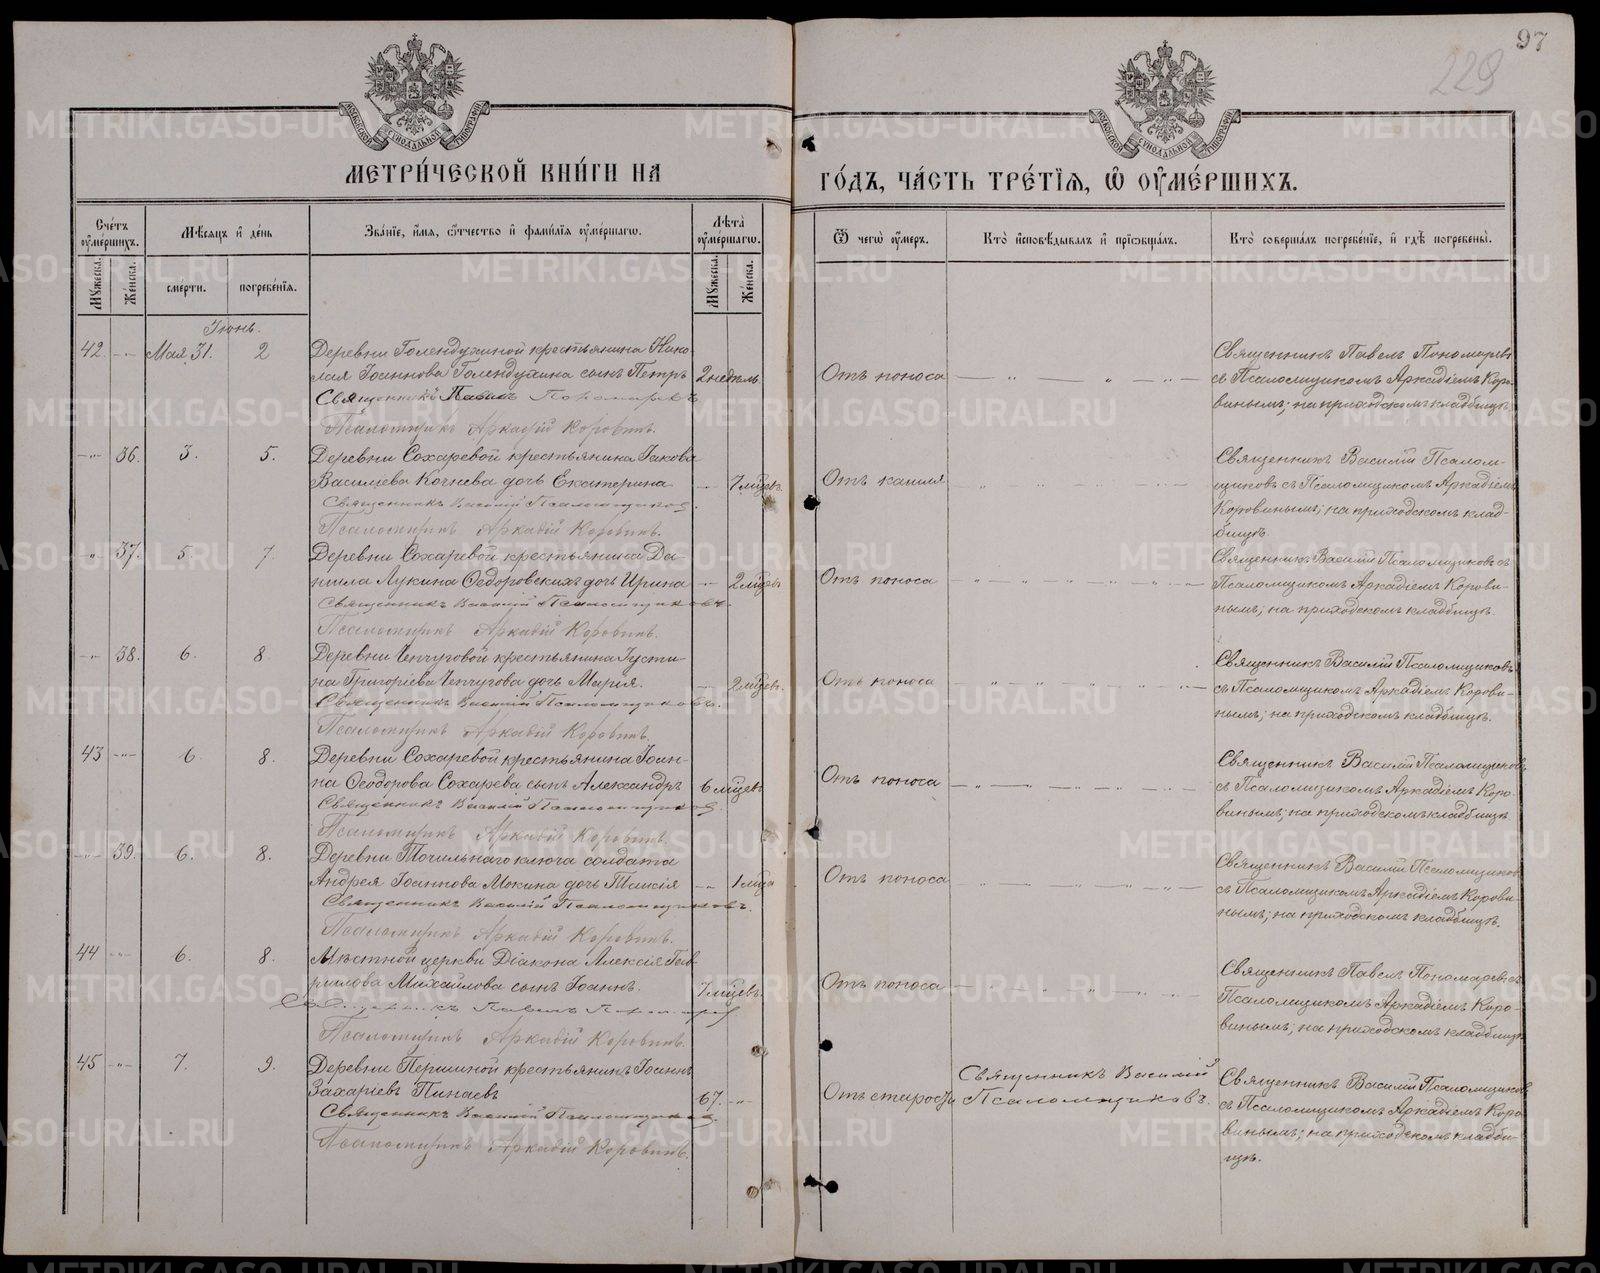 97
229
МЕТРИ́ЧЕСКОЙ КНИ́ГИ НА
ГО́ДЪ, ЧА́СТЬ ТРЕ́ТІЯ, Ѡ ОУМЕ́РШИХЪ.
Счётъ оумершихъ.
Мѣсяцъ и день
Званіе, имя, отчество и фамилія оумершагѡ.
Лѣта оумершагѡ.
Ѿ чегѡ оумеръ.
Кто исповѣдывалъ и пріобщалъ.
Кто совершалъ погребеніе, и гдѣ погребены.
Мужеска.
Женска.
смерти.
погребенія.
Мужеска.
Женска.
Іюнь.
42 Мая 31. 2
Деревни Голендухиной крестьянина Нико-
лая Іоаннова Голендухина сынъ Петръ
2 недѣль.
Священникъ Павелъ Пономаревъ
Псаломщикъ Аркадій Коровинъ.
Отъ поноса
Священникъ Павелъ Пономаревъ
съ Псаломщикомъ Аркадіемъ Коро-
винымъ; на приходскомъ кладбищѣ.
36. 3. 5.
Деревни Сохаревой крестьянина Іакова
Васильева Кочнева дочь Екатерина
7 мѣцевъ
Священникъ Василій Псаломщиковъ
Псаломщикъ Аркадій Коровинъ.
Отъ кашля
Священникъ Василій Псалом-
щиковъ съ Псаломщикомъ Аркадіемъ
Коровинымъ; на приходскомъ клад-
бищѣ.
37. 5. 7.
Деревни Сохаревой крестьянина Да-
ніила Лукина Ѳедоровскихъ дочь Ирина
2 мѣцевъ
Священникъ Василій Псаломщиковъ.
Псаломщикъ Аркадій Коровинъ.
Отъ поноса
Священникъ Василій Псаломщиковъ съ
Псаломщикомъ Аркадіемъ Корови-
нымъ; на приходскомъ кладбищѣ.
38. 6. 8.
Деревни Чепчуговой крестьянина Іусти-
на Григоріева Чепчугова дочь Марія.
2 мѣцевъ.
Священникъ Василій Псаломщиковъ.
Псаломщикъ Аркадій Коровинъ.
Отъ поноса
Священникъ Василій Псаломщиковъ
съ Псаломщикомъ Аркадіемъ Корови-
нымъ; на приходскомъ кладбищѣ.
43 6. 8.
Деревни Сохаревой крестьянина Іоан-
на Ѳеодорова Сохарева сынъ Александръ
6 мѣцевъ
Священникъ Василій Псаломщиковъ
Псаломщикъ Аркадій Коровинъ.
Отъ поноса
Священникъ Василій Псаломщиковъ
съ Псаломщикомъ Аркадіемъ Коро-
винымъ; на приходскомъ кладбищѣ
39. 6. 8.
Деревни Точильнаго ключа солдата
Андрея Іоаннова Мокина дочь Таисія
1 мѣца
Священникъ Василій Псаломщиковъ.
Псаломщикъ Аркадій Коровинъ.
Отъ поноса
Священникъ Василій Псаломщиковъ
съ Псаломщикомъ Аркадіемъ Корови-
нымъ; на приходскомъ кладбищѣ.
44 6. 8.
Мѣстной церкви Діакона Алексія Гав-
рилова Михайлова сынъ Іоаннъ.
7 мѣцевъ.
Священникъ Павелъ Пономарев
Псаломщикъ Аркадій Коровинъ.
Отъ поноса
Священникъ Павелъ Пономаревъ съ
Псаломщикомъ Аркадіемъ Коро-
винымъ; на приходскомъ кладбищѣ
45 7. 9.
Деревни Першиной крестьянинъ Іоаннъ
Захаріевъ Пинаевъ
67.
Священникъ Василій Псаломщиковъ.
Псаломщикъ Аркадій Коровинъ.
Отъ старости
Священникъ Василій
Псаломщиковъ.
Священникъ Василій Псаломщиковъ
съ Псаломщикомъ Аркадіемъ Коро-
винымъ; на приходскомъ кладби-
щѣ.
METRIKI.GASO-URAL.RU